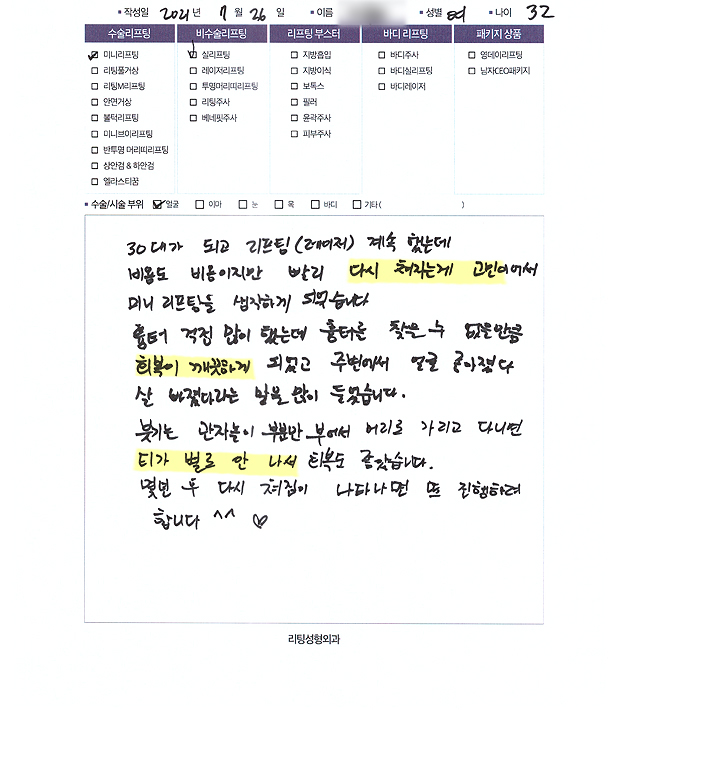 ▪ 작성일 2021년 7월 26일 ▪ 이름 ▪ 성별 여 ▪ 나이 32
수술리프팅 비수술리프팅 리프팅 부스터 바디 리프팅 패키지 상품
미니리프팅 실리프팅 지방흡입 바디주사 영데이리프팅
리팅풀거상 레이저리프팅 지방이식 바디실리프팅 남자CEO패키지
리팅M리프팅 투명머리띠리프팅 보톡스 바디레이저
안면거상 리팅주사 필러
불턱리프팅 베네핏주사 윤곽주사
미니브이리프팅 피부주사
반투명 머리띠리프팅
상안검 & 하안검
엘라스티꿈
▪ 수술/시술 부위 얼굴 이마 눈 목 바디 기타( )
30대가 되고 리프팅(레이저) 계속 했는데
비용도 비용이지만 빨리 다시 쳐지는게 고민이어서
미니 리프팅을 생각하게 되었습니다
흉터 걱정 많이 했는데 흉터를 찾을 수 없을만큼
회복이 깨끗하게 되었고 주변에서 얼굴 작아졌다
살 빠졌다라는 말을 많이 들었습니다.
붓기는 관자놀이 부분만 부어서 머리로 가리고 다니면
티가 별로 안 나서 회복도 좋았습니다.
몇년 후 다시 쳐짐이 나타나면 또 진행하려
합니다 ^^ ♡
리팅성형외과